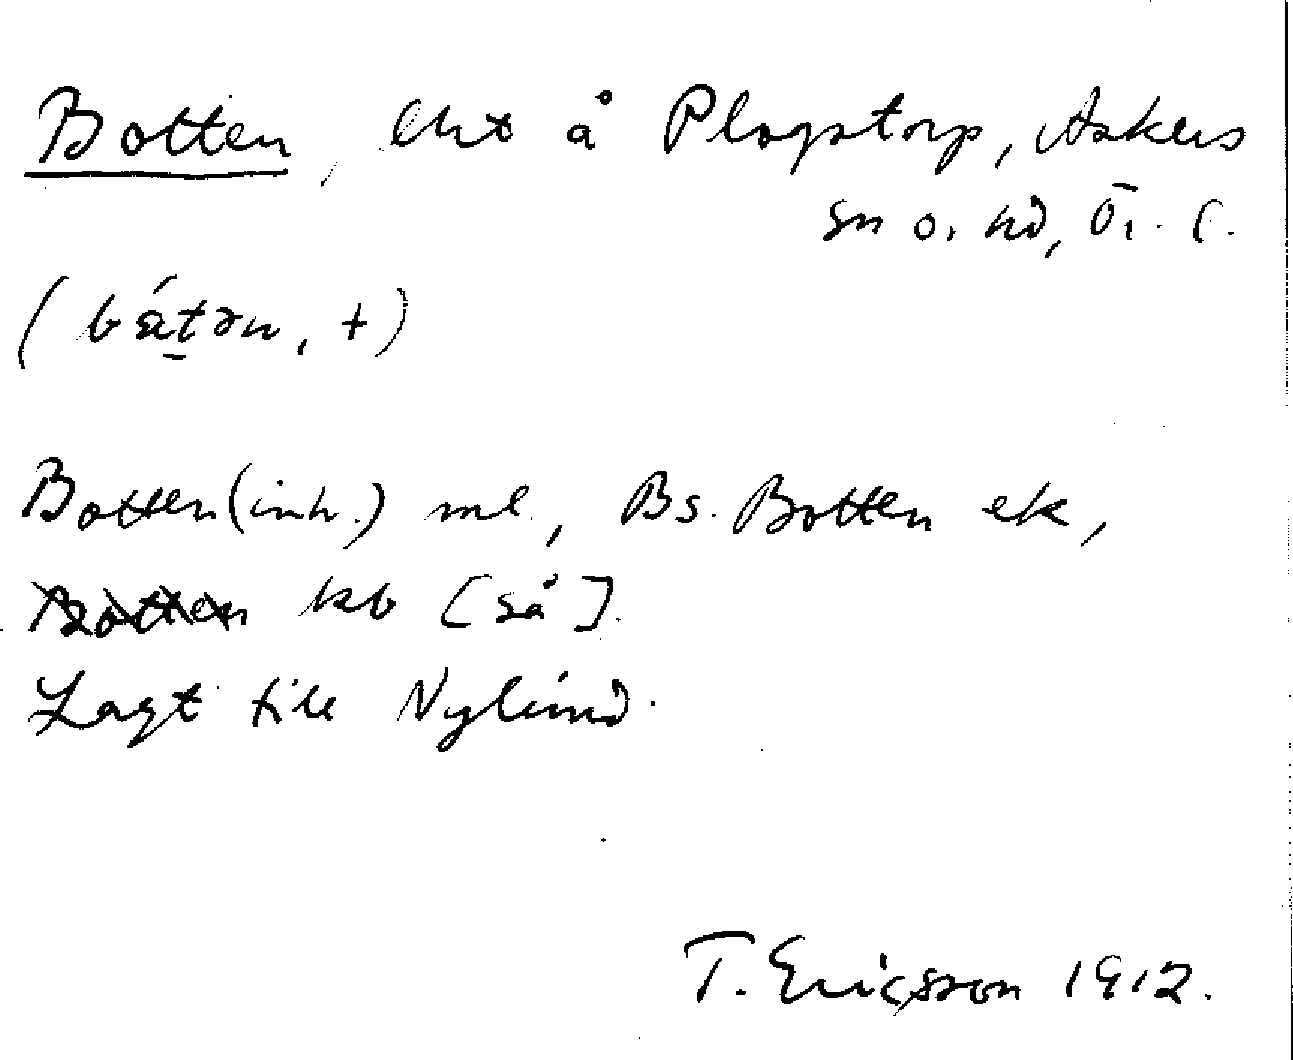 Botten, lht å Plogstorp, Askers
sn o. hd, Ör. l.
(bát̠ǝn, +)
Botten (inh.) ml., Bs. Botten ek,
kb [så].
Lagt till Nylund.
T. Ericsson 1912.